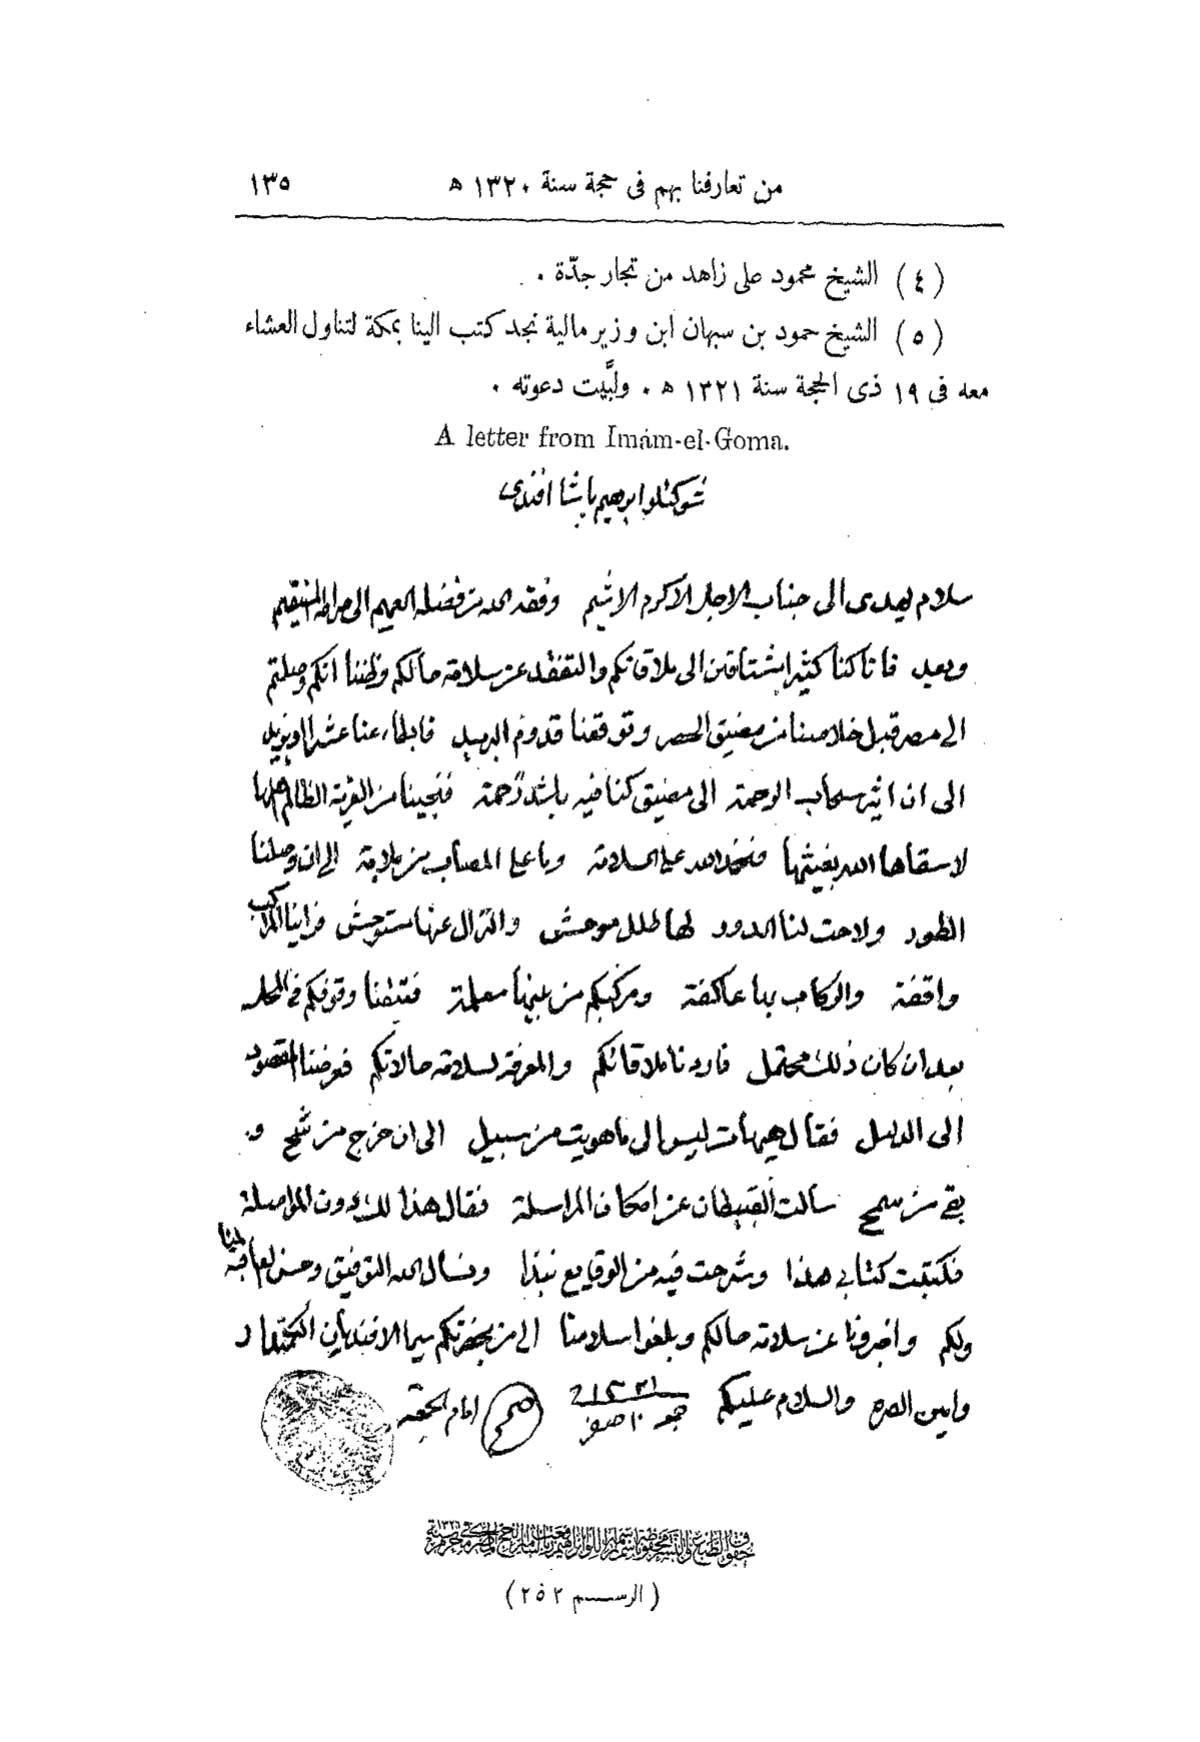 من تعارفنا بهم فى حجة سنة ١٣٢٠ ه ١٣٥
(٤) الشيخ محمود على زاهد من تجار جدّة .
(٥) الشيخ حمود بن سبهان ابن وزير مالية نجد كتب الينا بمكة لتناول العشاء
معه فى ١٩ ذى الحجة سنة ١٣٢١ ه . ولبَّيت دعوته .
A letter from Imám-el-Goma.
شوكتلو ابرهيم باشا افندى
سلام يهدى الى جناب الاجل الاكرم الاشيم وفقه الله من فضله العميم الى صراطه المستقيم
وبعد فاناكنا كثير اشتياق الى ملاقاتكم والتفقد عن سلامة حالكم وظننا انكم وصلتم
الى مصر قبل خلاصنا من مضيق الحصر وتوقعنا قدوم البريد فابطاء عنا عشرا او يزيد
الى ان اثير سحاب الرحمة الى مضيق كنا فيه باشد زحمة فنجينا من القرية الظالم اهلها
لاسقاها الله بغيثها فنحمد الله على السلامة وما على المصاب من ملامة الى ان وصلنا
الطور ولاحت لنا الدور لها طلل موحش والنزال عنها مستوحش فراينا المراكب
واقفة والركاب بها عاكفة ومركبكم من بينها معلمة فتيقنا وقوفكم فى المحلة
بعد ان كان ذلك محتمل فاردنا ملاقاتكم والمعرفة لسلامة حالاتكم فعرضنا المقصود
الى الدليل فقال هيهات ليس الى ما هويت من سبيل الى ان خرج من شح و
بقى من سمح سألت القبطان عن امكان المراسلة فقال هذا لك دون المواصلة
فكتبت كتابى هذا وشرحت فيه من الوقايع نبذا ونسال الله التوفيق وحسن العاقبة لنا
ولكم واخبرونا عن سلامة حالكم وبلغوا سلامنا الى من بحضرتكم سيما الافنديان
وامين الصره والسلام عليكم ١٣٢١ ١٠ صفر امام الجمعة
(الرسم ٢٥٢)